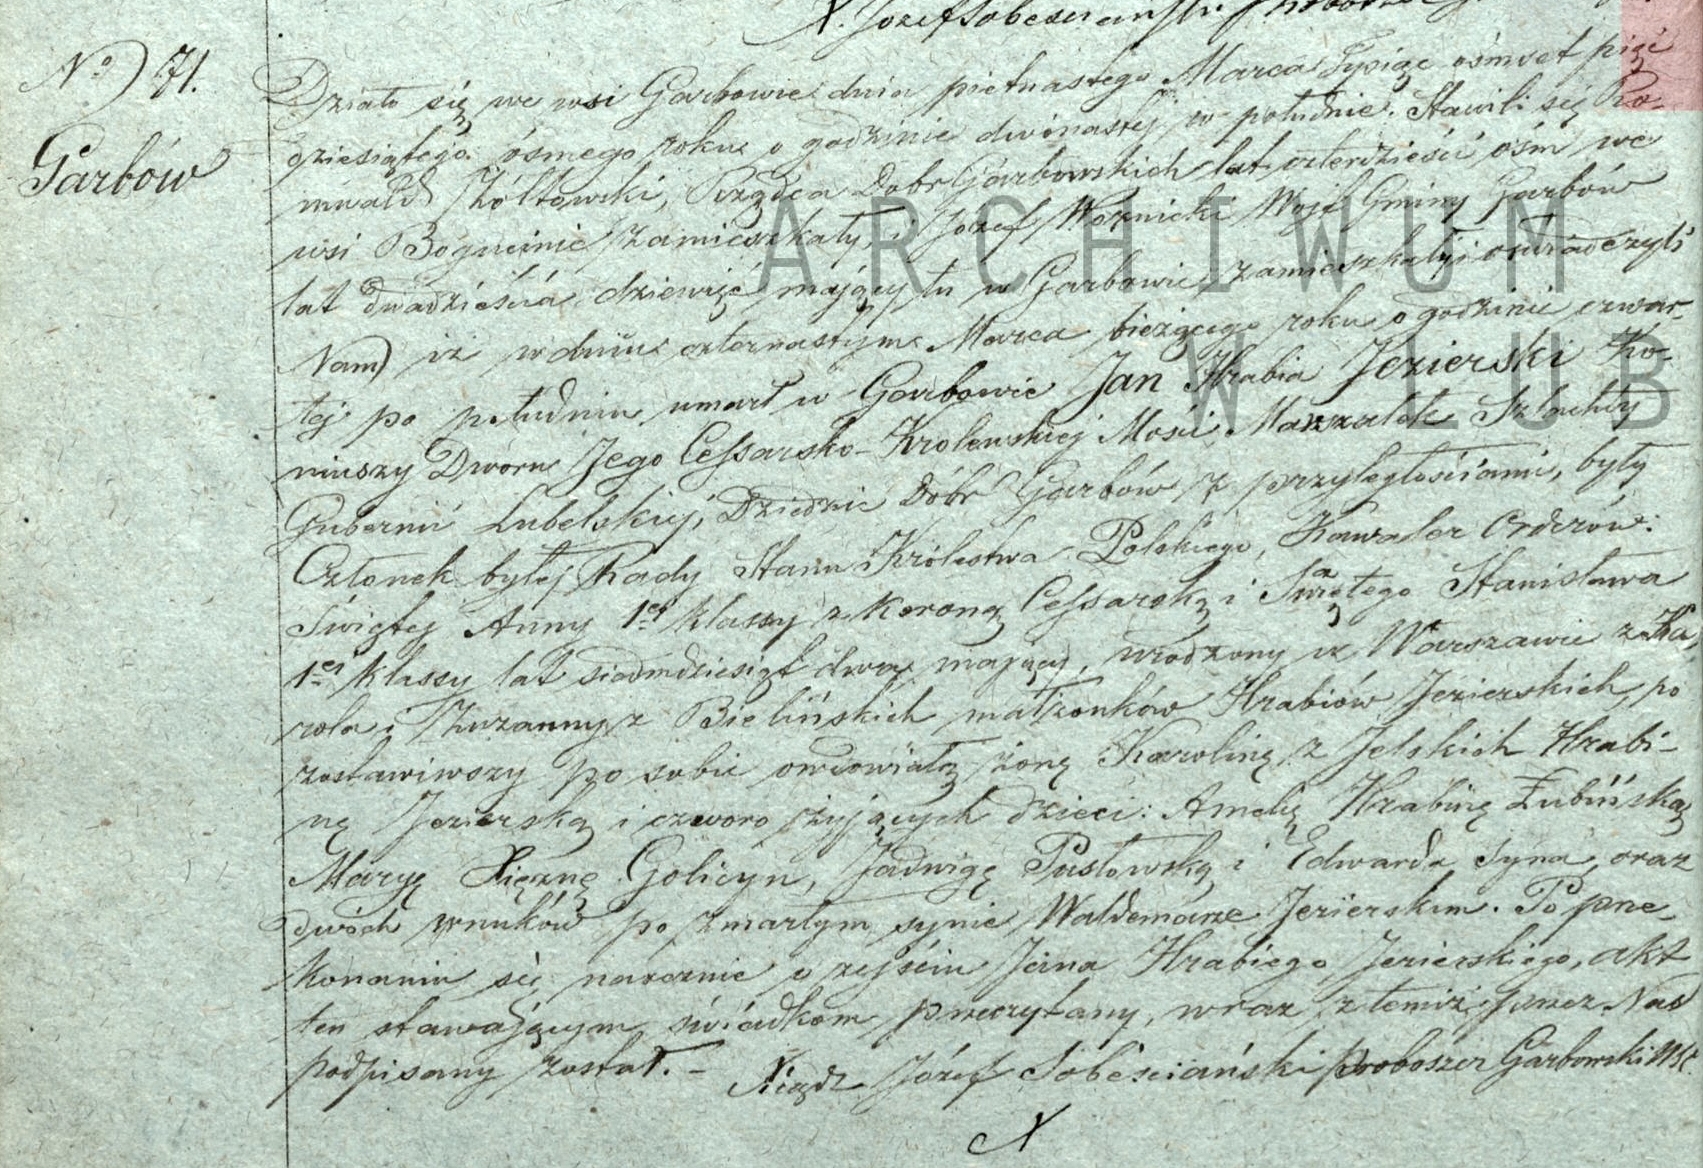 X. Józef Sobesciański Proboszcz
No 71. Działo się we wsi Garbowie dnia piętnastego Marca Tysiąc ośmset pięć
Garbów dziesiątego ósmego roku o godzinie dwónastej w południe. Stawili się Ro-
muald Żółtowski, Rządca Dobr Garbowskich lat czterdzieści ośm we
wsi Bogucinie zamieszkały, i Józef Woznicki Wójt Gminy Garbów
lat dwadzieścia dziewięć mający tu w Garbowie zamieszkały, i oświadczyli
Nam iż w dniu czternastym Marca bieżącego roku o godzinie czwar-
tej po południu umarł w Garbowie Jan Hrabia Jezierski Ko-
niuszy Dworu Jego Cessarsko-Krolewskiej Mości Marszałek Szlachty
Gubernii Lubelskiej, Dziedzic Dóbr Garbów z przyległościami, były
Członek byłej Rady Stanu Królestwa Polskiego, Kawaler Orderów:
Świętej Anny 1ej klassy z Koroną Cessarską i Świętego Stanisława
1ej klassy lat siedmdziesiąt dwa mający, urodzony w Warszawie z Ka-
rola i Zuzanny z Bielińskich małżonków Hrabiów Jezierskich, po
zostawiwszy po sobie owdowiałą żonę Karolinę z Jelskich Hrabi-
nę Jezierską i czworo żyjących dzieci: Amelię Hrabinę Łubińską
Maryę Xiężnę Golicyn, Jadwigę Pusłowską i Edwarda syna, oraz
dwóch wnuków po zmarłym synie Waldemarze Jezierskim. Po prze
konaniu się naocznie o zejściu Jana Hrabiego Jezierskiego, akt
ten stawającym świadkom przeczytany, wraz z temiż przez Nas
podpisany został. – Xiądz Józef Sobesciański Proboszcz Garbowski
ARCHIWUM
W LUB